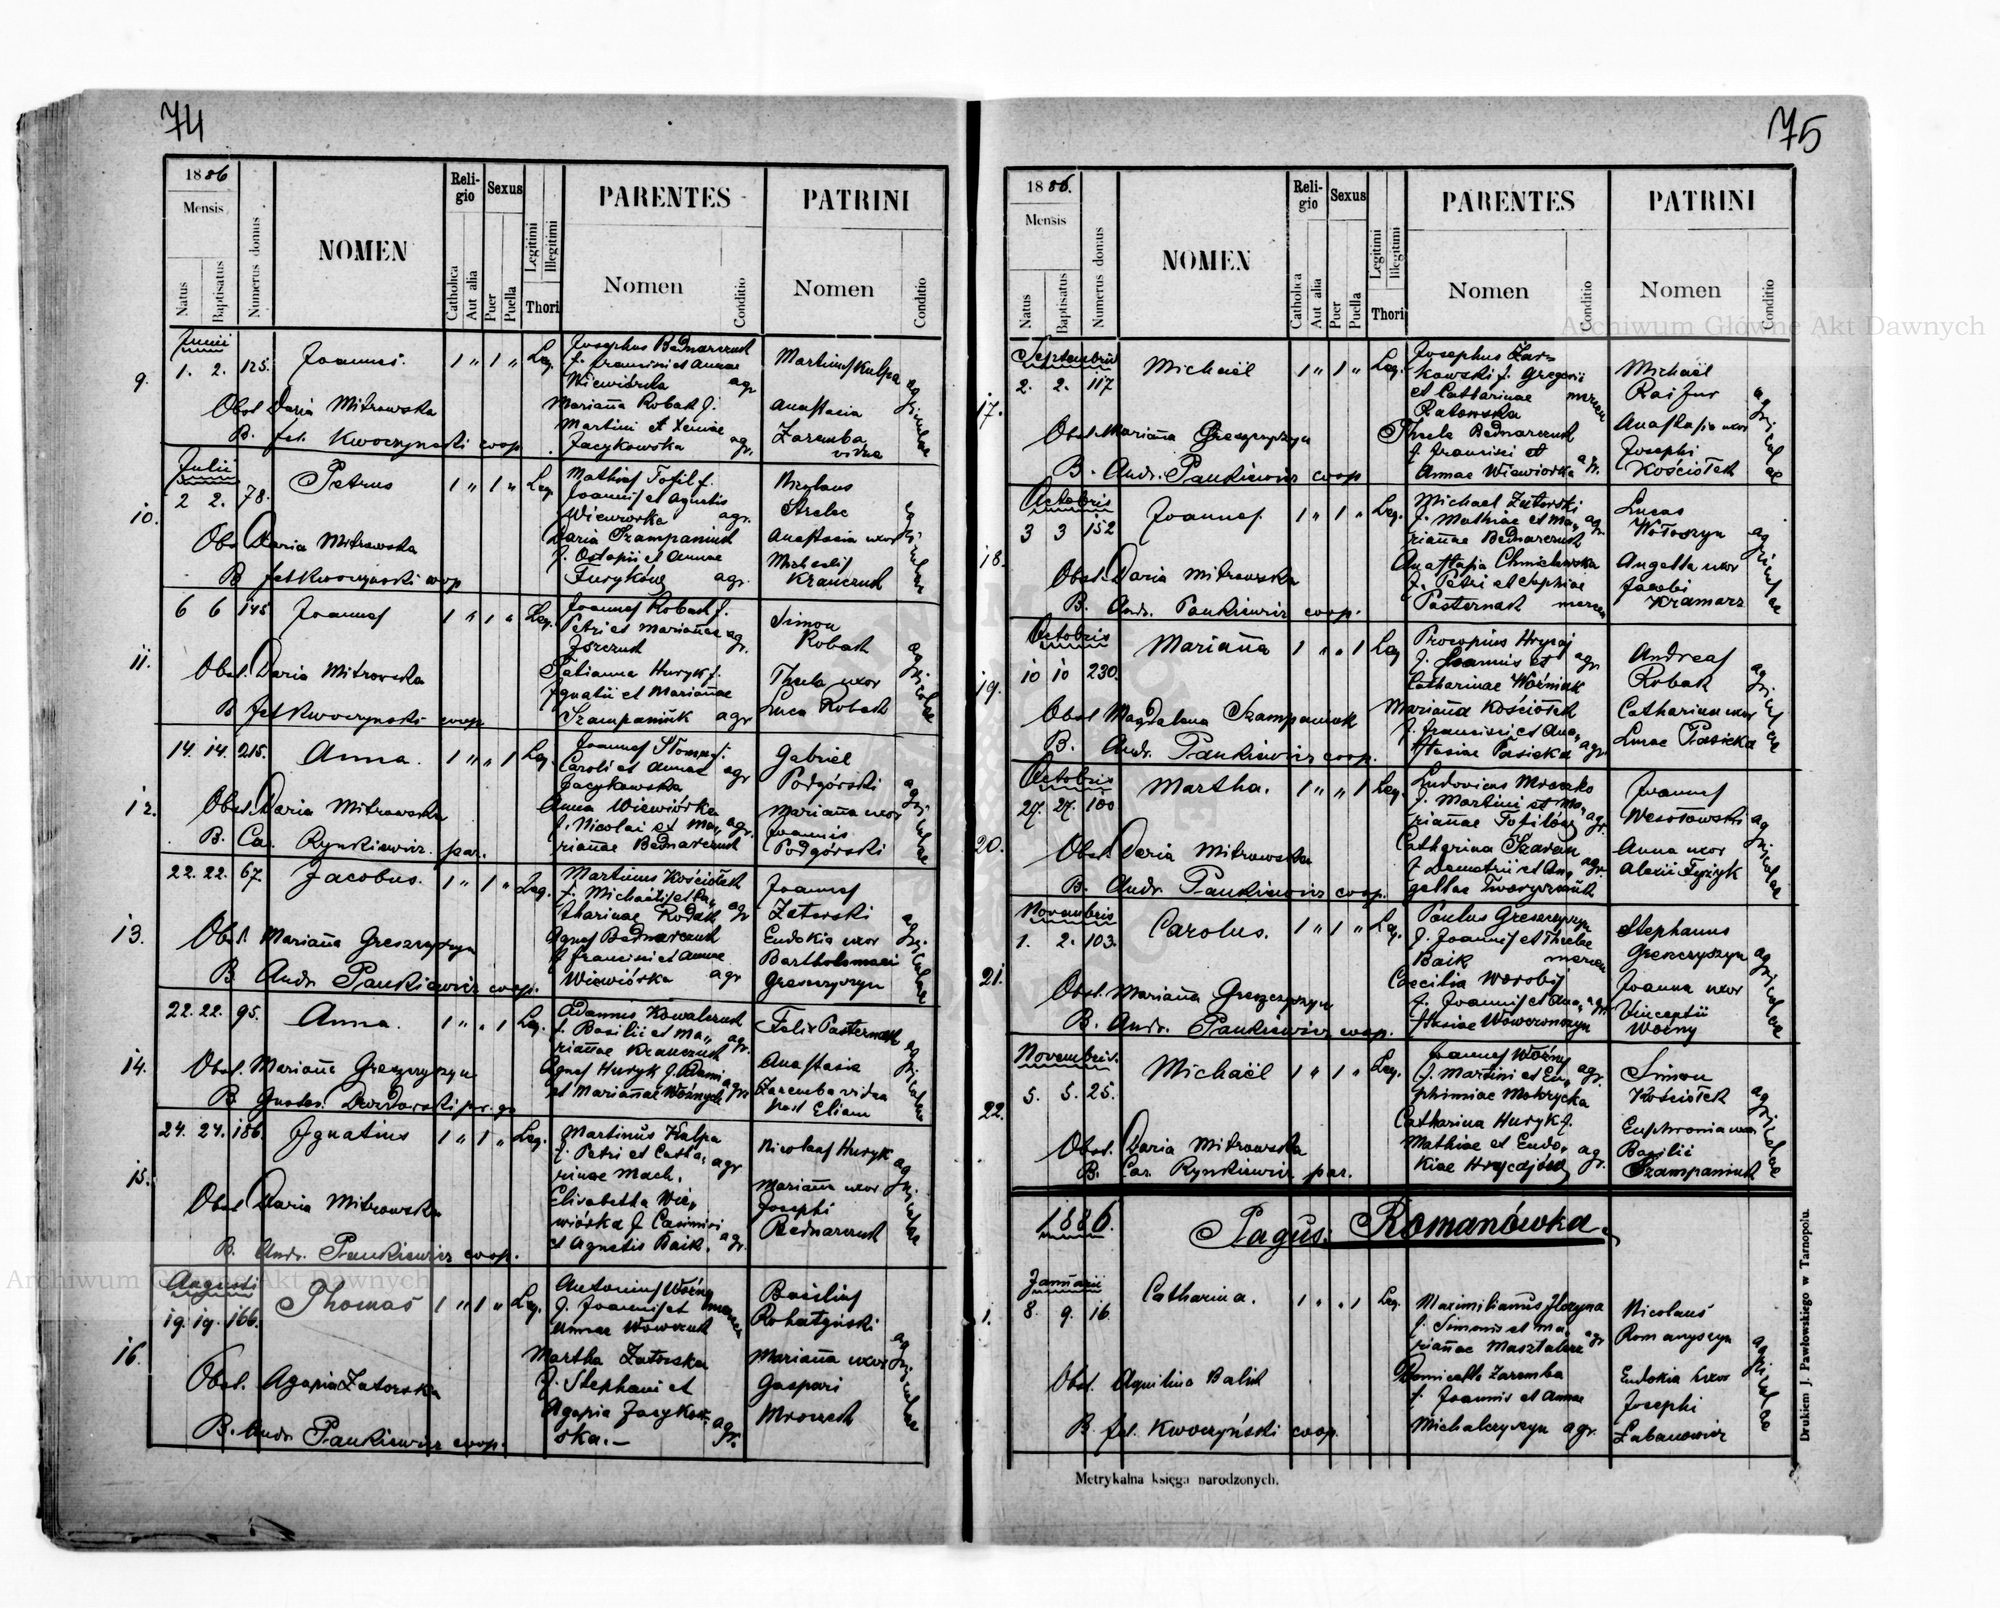 74
1886
Mensis
Natus
Baptisatus
Numerus domus
NOMEN
Religio
Catholica
Aut alia
Sexus
Puer
Puella
Legitimi
Illegitimi
Thori
PARENTES
Nomen
Conditio
PATRINI
Nomen
Conditio
Junii
9. 1. 2. 125. Joannes. 1 " 1 " Leg.
Josephus Bednarczuk
f. Francisci et Annae
Wiewiórka agr.
Marianna Robak f.
Martini et Xeniae
Jacykowska agr.
Martinus Kulpa
Anastasia
Zaremba
vidua
agricolae
Obst. Daria Mitrowska
B. fel. Kwoczynski coop
Julii
10. 2 2. 78. Petrus 1 " 1 " Leg.
Mathias Tofil f.
Joannis et Agnetis
Wiewiorka agr.
Daria Szampaniuk
f. Ostapii et Annae
Furyków agr.
Nicolaus
Strelec
Anastasia uxor
Michaelis
Krawczuk
agricolae
Obs Daria Mitrowska
B fel Kwoczynski coop
11. 6 6 145 Joannes 1 " 1 " Leg.
Joannes Robak f.
Petri et Mariannae agr.
Tatianna Huryk f.
Ignatii et Mariannae
Szampaniuk agr
Simon
Robak
Thecla uxor
Lucae Robak
agricolae
Obst. Daria Mitrowska
B fel Kwoczynski coop
12. 14. 14. 215. Anna. 1 " " 1 Leg.
Joannes Słoma f.
Caroli et Annae agr
Jacykowska
Anna Wiewiórka
f. Nicolai et Ma- agr.
riannae Bednarczuk
Gabriel
Podgórski
Marianna uxor
Joannis
Podgórski
agricolae
Obst. Daria Mitrowska
B. Ca. Rynkiewicz. par.
13. 22. 22. 67. Jacobus. 1 " 1 " Leg.
Martinus Kościółek
f. Michaëlis et Ca-
tharinae Robak agr
Agnes Bednarczuk
f Francisci et Annae
Wiewiórka agr
Joannes
Zatorski
Eudokia uxor
Bartholomaei
Greszczyszyn
agricolae
Obst. Marianna Greszczyszyn
B Andr. Pankiewicz coop.
14. 22. 22. 95. Anna. 1 " " 1 Leg.
Adamus Kowalczuk
f. Basilii et Ma- agr.
riannae Krawczuk
Agnes Huryk f. Adami agr
et Mariannae Woźnych
Felix Pasternak
Anastasia
Zaremba vidua
post Eliam
agricolae
Obst. Marianna Greszczyszyn
15. 24. 24. 186. Ignatius 1 " 1 " Leg.
Martinus Kulpa
f. Petri et Catha- agr
rinae Mach.
Elisabetha Wie-
wiórka f. Casimiri
et Agnetis Baik. agr.
Nicolaus Huryk
Marianna uxor
Josephi
Bednarczuk
agricolae
Obst Daria Mitrowska
B. Andr. Pankiewicz coop.
Augusti
16. 19. 19. 166. Thomas 1 " 1 " Leg.
Antonius Woźny
f. Joannis et
Annae Wowczuk
Martha Zatorska
f. Stephani et
Agapia Jacykow-
ska.- agr.
Basilius
Rohatyński
Marianna uxor
Gaspari
Mroczek
agricolae
Obst. Agapia Zatorska
B. Andr. Pankiewicz coop.
75
1886.
Mensis
Natus
Baptisatus
Numerus domus
NOMEN
Religio
Catholica
Aut alia
Sexus
Puer
Puella
Legitimi
Illegitimi
Thori
PARENTES
Nomen
Conditio
PATRINI
Nomen
Conditio
Septembris
17. 2. 2. 117 Michaël 1 " 1 " Leg.
Josephus Żar-
kowski f. Gregorii
et Catharinae
Ratowska
Thecla Bednarczuk
f Francisci et
Annae Wiewiorka agr.
Michaël
Raizur
Anastasia uxor
Josephi
Kościółek
agricolae
Obst. Marianna Greszczyszyn
B. Andr. Pankiewicz coop
Octobris
18. 3 3 152 Joannes 1 " 1 " Leg.
Michael Zatorski
f. Mathiae et Ma- agr.
riannae Bednarczuk
Anastasia Chmielowska
f. Petri et Sophiae
Pasternak
Lucas
Wołoszyn
Angella uxor
Jacobi
Kramarz
agricolae
Obst. Daria Mitrowska
B. Andr. Pankiewicz coop.
Octobris
19. 10 10 230. Marianna 1 " " 1 Leg
Procopius Hrycaj
f. Joannis et agr.
Catharinae Woźniak
Marianna Kościółek
f. Francisci et Ana-
stasiae Pasieka agr.
Andreas
Robak
Catharina uxor
Lucae Pasieka
agricolae
Obst Magdalena Szampaniuk
B. Andr. Pankiewicz coop.
Octobris
20. 27. 27. 100 Martha. 1 " " 1 Leg.
Ludovicus Mroczko
f. Martini et Ma-
riannae Tofilów agr.
Catharina Szaran
f Demetrii et An- agr.
gellae Tworydziank
Joannes
Wesołowski
Anna uxor
Alexii Fyzyk
agricolae
Obst. Daria Mitrowska
B. Andr. Pankiewicz coop.
Novembris
21. 1. 2. 103. Carolus. 1 " 1 " Leg.
Paulus Greszczyszyn
f. Joannis et Theclae
Baik
Caecilia Worobij
f. Joannis et Ana- agr.
stasiae Wowczonszyn
Stephanus
Greszczyszyn
Joanna uxor
Vincentii
Woźny
agricolae
Obst. Marianna Greszczyszyn
B. Andr. Pankiewicz coop.
Novembris.
22. 5. 5. 25. Michaël 1 " 1 " Leg.
Joannes Woźny
f. Martini et Eu- agr.
phimiae Mokrycka
Catharina Huryk f.
Mathiae et Eudo-
kiae Hrycajów agr.
Simon
Kościółek
Euphronia uxor
Basilii
Szampaniuk
agricolae
Obst. Daria Mitrowska
B. Car. Rynkiewicz par.
1886. Pagus: Romanówka.
Januarii
1. 8. 9. 16 Catharina. 1 " " 1 Leg.
Maximilianus Horyna
f. Simonis et Ma-
riannae Masztalerz agr
Domicella Zaremba
f. Joannis et Annae
Michalczyszyn agr.
Nicolaus
Romanyszyn
Eudokia uxor
Josephi
Łabanowicz
agricolae
Obst. Aquilina Baluk
B. fel. Kwoczyński coop.
Metrykalna księga narodzonych.
Drukiem J. Pawłowskiego w Tarnopolu.
Archiwum Główne Akt Dawnych
Archiwum Główne Akt Dawnych